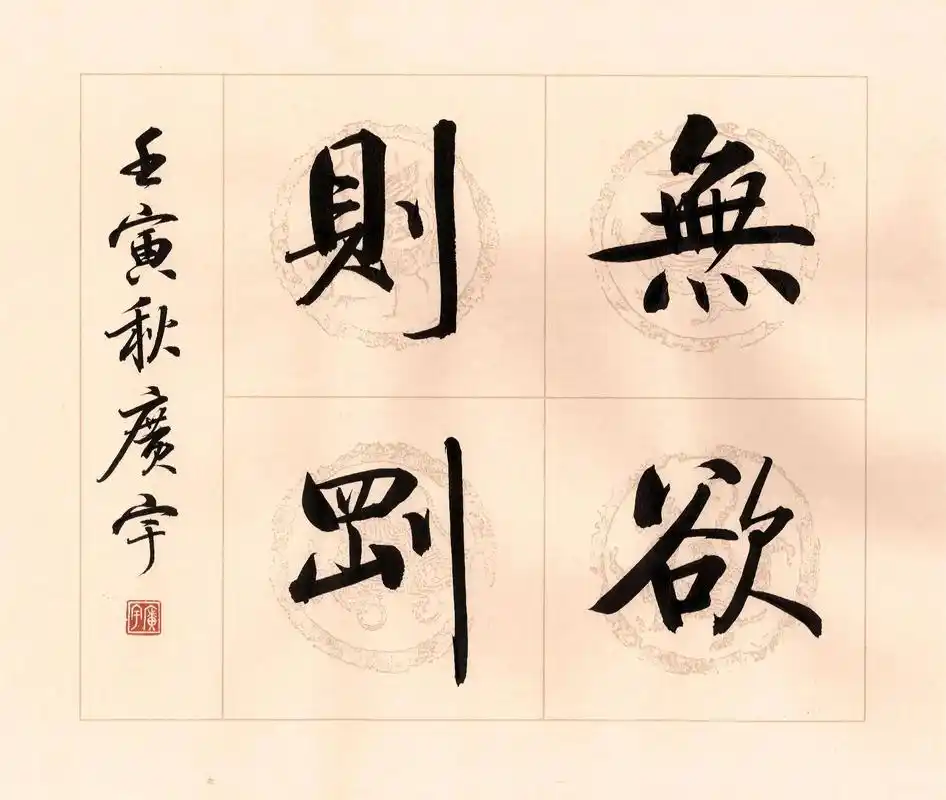 無欲
則剛
壬寅秋廣宇
廣宇